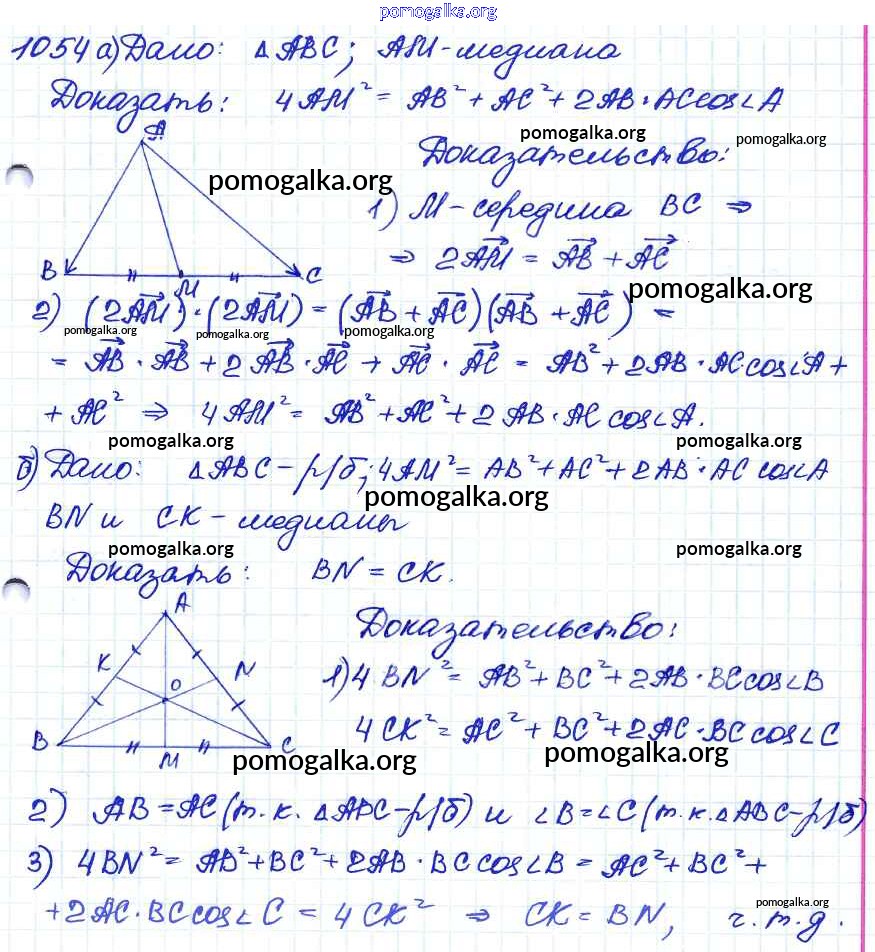 pomogalka.org
1054 а) Дано: △ABC; AM-медиана
Доказать: 4AM² = AB² + AC² + 2AB·AC cos∠A
pomogalka.org pomogalka.org
A
Доказательство:
pomogalka.org
1) M-середина BC ⇒
⇒ 2AM⃗ = AB⃗ + AC⃗
B M C
pomogalka.org
2) (2AM⃗)·(2AM⃗) = (AB⃗ + AC⃗)(AB⃗ + AC⃗) =
pomogalka.org pomogalka.org pomogalka.org
= AB⃗·AB⃗ + 2AB⃗·AC⃗ + AC⃗·AC⃗ = AB² + 2AB·AC cos∠A +
+ AC² ⇒ 4AM² = AB² + AC² + 2AB·AC cos∠A.
pomogalka.org pomogalka.org
б) Дано: △ABC - р/б; 4AM² = AB² + AC² + 2AB·AC cos∠A
pomogalka.org
BN и CK - медианы
pomogalka.org pomogalka.org
Доказать: BN = CK.
A
Доказательство:
K N
O
1) 4BN² = AB² + BC² + 2AB·BC cos∠B
4CK² = AC² + BC² + 2AC·BC cos∠C
B M C
pomogalka.org pomogalka.org
2) AB = AC (т.к. △ABC - р/б) и ∠B = ∠C (т.к. △ABC - р/б)
3) 4BN² = AB² + BC² + 2AB·BC cos∠B = AC² + BC² +
pomogalka.org
+ 2AC·BC cos∠C = 4CK² ⇒ CK = BN, ч.т.д.